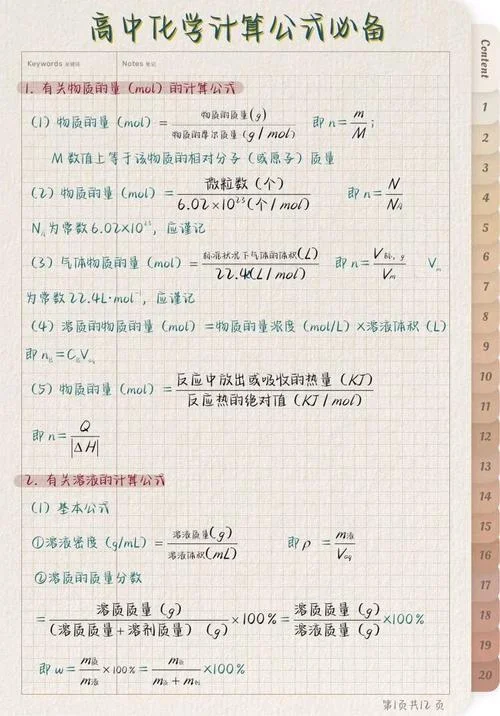 高中化学计算公式必备
Keywords 关键词 Notes 笔记
Content
1. 有关物质的量（mol）的计算公式
（1）物质的量（mol）= 物质的质量(g) / 物质的摩尔质量（g/mol） 即 n = m/M；
M数值上等于该物质的相对分子（或原子）质量
（2）物质的量（mol）= 微粒数（个） / 6.02×10²³(个/mol) 即 n = N/N_A
N_A为常数6.02×10²³，应谨记
（3）气体物质的量（mol）= 标准状况下气体的体积(L) / 22.4(L/mol) 即 n = V标,g/Vm Vm
为常数22.4L·mol⁻¹，应谨记
（4）溶质的物质的量（mol）=物质的量浓度（mol/L）×溶液体积（L）
即 nB=CBVaq
（5）物质的量（mol）= 反应中放出或吸收的热量（KJ） / 反应热的绝对值（KJ/mol）
即 n = Q/|ΔH|
2. 有关溶液的计算公式
（1）基本公式
①溶液密度（g/mL）= 溶液质量(g) / 溶液体积(mL) 即 ρ = m液/Vaq
②溶质的质量分数
= 溶质质量（g） / （溶质质量+溶剂质量）（g） ×100% = 溶质质量（g） / 溶液质量（g） ×100%
即 w = m质/m液 ×100% = m质/(m质+m剂) ×100%
第1页共12页
1
2
3
4
5
6
7
8
9
10
11
12
13
14
15
16
17
18
19
20